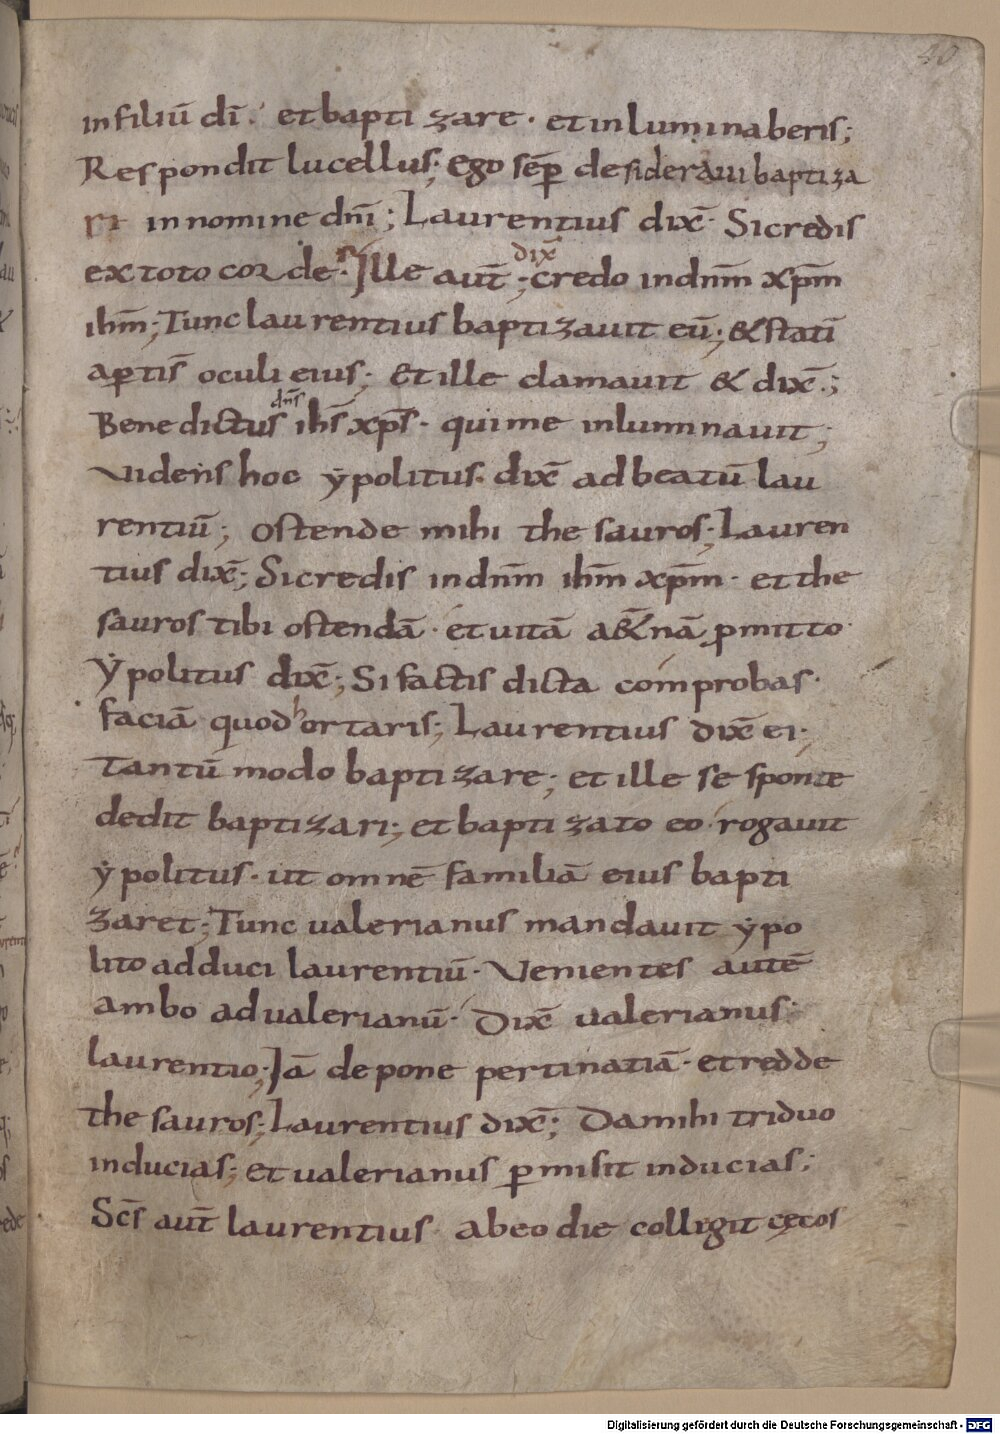 40
infiliū dī. et baptizare. et inluminaberis;
Respondit lucellus; Ego sēp desideraui baptiza
ri in nomine dn̄i; Laurentius dix̄. Si credis
ex toto corde. Ille aut̄; dix̄ credo in dn̄m xp̄m
ih̄m; Tunc laurentius baptizauit eū; & statī
aꝑtis̄ oculi eius; Et ille clamauit & dix̄.;
Benedictus dn̄s ih̄s xp̄s. qui me inluminauit;
Videns hoc ẏpolitus. dix̄ ad beatū lau
rentiū; ostende mihi thesauros; Lauren
tius dix̄; Si credis in dn̄m ih̄m xp̄m. et the
sauros tibi ostendā. et uitā a&̄nā ꝓmitto
Ẏpolitus dix̄; Si factis dicta comprobas.
faciā quod hortaris; Laurentius dix̄ ei;
Tantū modo baptizare; et ille se sponte
dedit baptizari; et baptizato eo rogauit
ẏpolitus. ut omnē familiā eius bapti
zaret; Tunc ualerianus mandauit ẏpo
lito adduci laurentiū. Venientes autē
ambo ad ualerianū. Dix̄ ualerianus;
laurentio; Iā depone pertinatiā. et redde
thesauros; Laurentius dix̄; Da mihi triduo
inducias; et ualerianus ꝑmisit inducias;
Sc̄s aut̄ laurentius ab eo die colligit cęcos
Digitalisierung gefördert durch die Deutsche Forschungsgemeinschaft - DFG